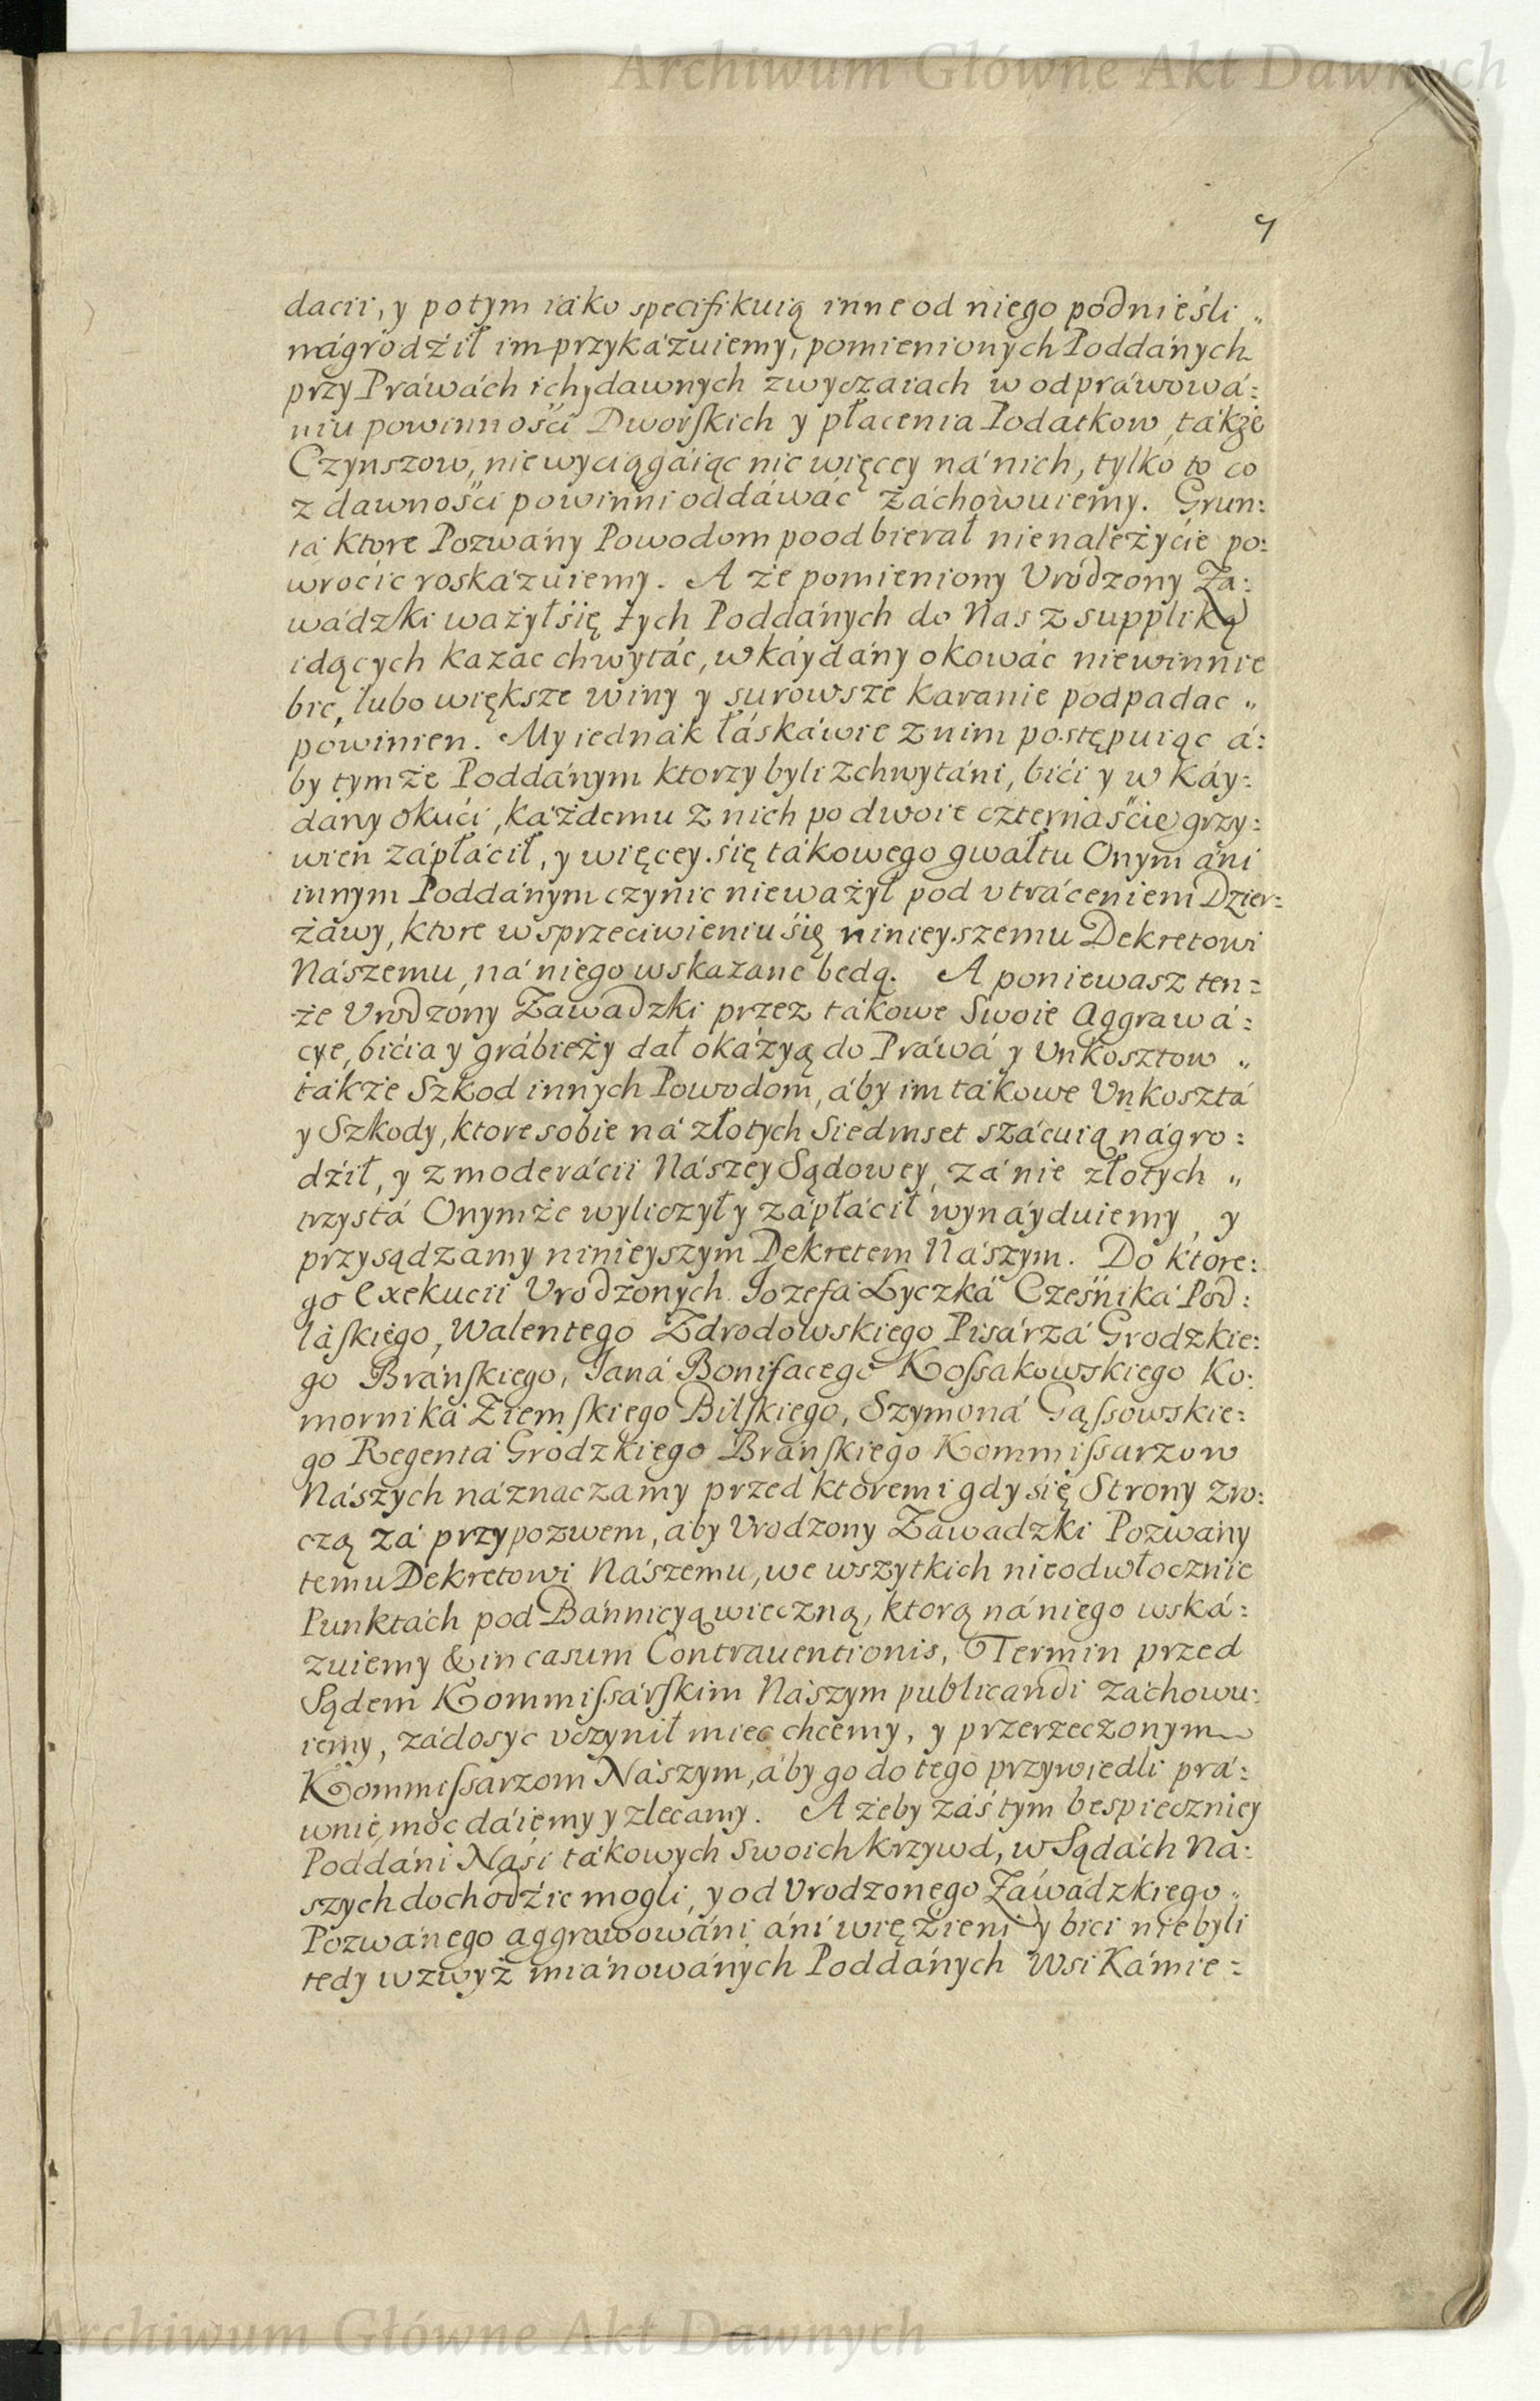 Archiwum Główne Akt Dawnych
7
dacii, y potym iako specifikuią inne od niego podnieśli „
nágrodźił im przykázuiemy, pomienionych Poddánych
przy Práwách ich y dawnych zwyczaiach w odpráwowá:
niu powinnośći Dworſkich y płacenia Podatkow, także
Czynszow, nie wyciągáiąc nic więcey ná nich, tylko to co
z dawnośći powinni oddáwáć záchowuiemy. Grun:
tá ktore Pozwány Powodom poodbierał nienależyćie po:
wroćić roskázuiemy. A że pomieniony Vrodzony Za:
wádzki ważył śię tych Poddánych do Nas z suppliką
idących kazáć chwytáć, w káydány okowáć niewinnie
bić, lubo większe winy y surowsze karanie podpadać „
powinien. My iednák łáskáwie z nim postępuiąc á:
by tymże Poddánym ktorzy byli zchwytáni, bići y w káy:
dány okući, każdemu z nich po dwoie czternaśćie grzy:
wien zápłáćił, y więcey śię tákowego gwałtu Onym áni
innym Poddánym czynić nieważył pod vtráceniem Dzier:
żáwy, ktore w sprzeciwieniu śię ninieyszemu Dekretowi
Nászemu, ná niego wskazane bedą. A poniewasz ten:
że Vrodzony Zawadzki przez tákowe Swoie Aggrawá:
cye, bićia y grábieży dał okázyą do Práwá y Vnkosztow „
tákże Szkod innych Powodom, áby im tákowe Vnkosztá
y Szkody, ktore sobie ná złotych Siedmset szácuią nágro:
dźił, y z moderácii Nászey Sądowey, zá nie złotych „
trzystá Onymże wyliczył y zápłáćił wynáyduiemy, y
przysądzamy ninieyszym Dekretem Nászym. Do ktore:
go Exekucii Vrodzonych Jozefá Łyczká Cześniká Pod:
láſkiego, Walentego Zdrodowskiego Pisárzá Grodzkie:
go Bránſkiego, Janá Bonifacego Koſsakowskiego Ko:
morniká Ziemſkiego Bilſkiego, Szymoná Gąſsowskie:
go Regentá Grodzkiego Bránſkiego Kommiſsarzow
Nászych náznaczamy przed ktoremi gdy się Strony zro:
czą zá przypozwem, aby Vrodzony Zawadzki Pozwány
temu Dekretowi Nászemu, we wszytkich nieodwłocznie
Punktách pod Bánnicyą wieczną, ktorą ná niego wská:
zuiemy & in casum Contrauentionis, Termin przed
Sądem Kommiſsárſkim Nászym publicandi zachowu:
iemy, zádosyć vczynił mieć chcemy, y przerzeczonym
Kommiſsarzom Nászym, áby go do tego przywiedli prá:
wnie, moc dáiemy y zlecamy. A żeby záś tym bespieczniey
Poddáni Naśi tákowych Swoich krzywd, w Sądách Ná:
szych dochodźić mogli, y od Vrodzonego Záwádzkiego „
Pozwánego aggrawowáni áni więźieni y bići nie byli
tedy wzwyż miánowánych Poddánych Wsi Kámie:
Archiwum Główne Akt Dawnych